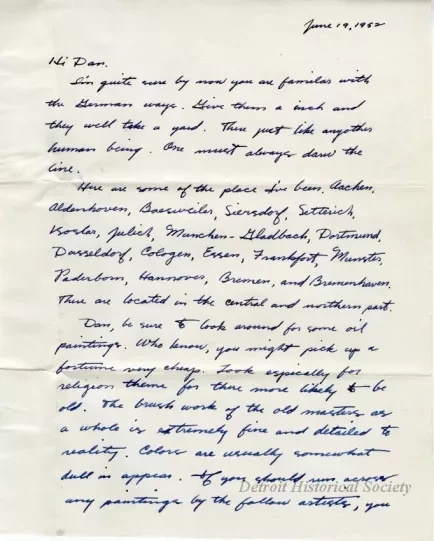 June 19, 1952
Hi Dan.
I'm quite sure by now you are familar with
the German ways. Give them a inch and
they well take a yard. There just like anyother
human being. One must always draw the
line.
Here are some of the place I've been, Aachen,
Aldenhoven, Baesweiler, Siersdorf, Setterich,
Koslar, Julich, Munchen-Gladbach, Dortmund,
Dusseldorf, Cologen, Essen, Frankfort, Munster,
Paderborn, Hannover, Bremen, and Bremenhaven.
There are located in the central and northern part.
Dan, be sure to look around for some oil
paintings. Who know, you might pick up a
fortune very cheap. Look espically for
religion theme for there more likely to be
old. The brush work of the old masters as
a whole is extremely fine and detailed to
reality. Colors are usually somewhat
dull in appear. If you should run across
any paintings by the follow artists, you
Detroit Historical Society